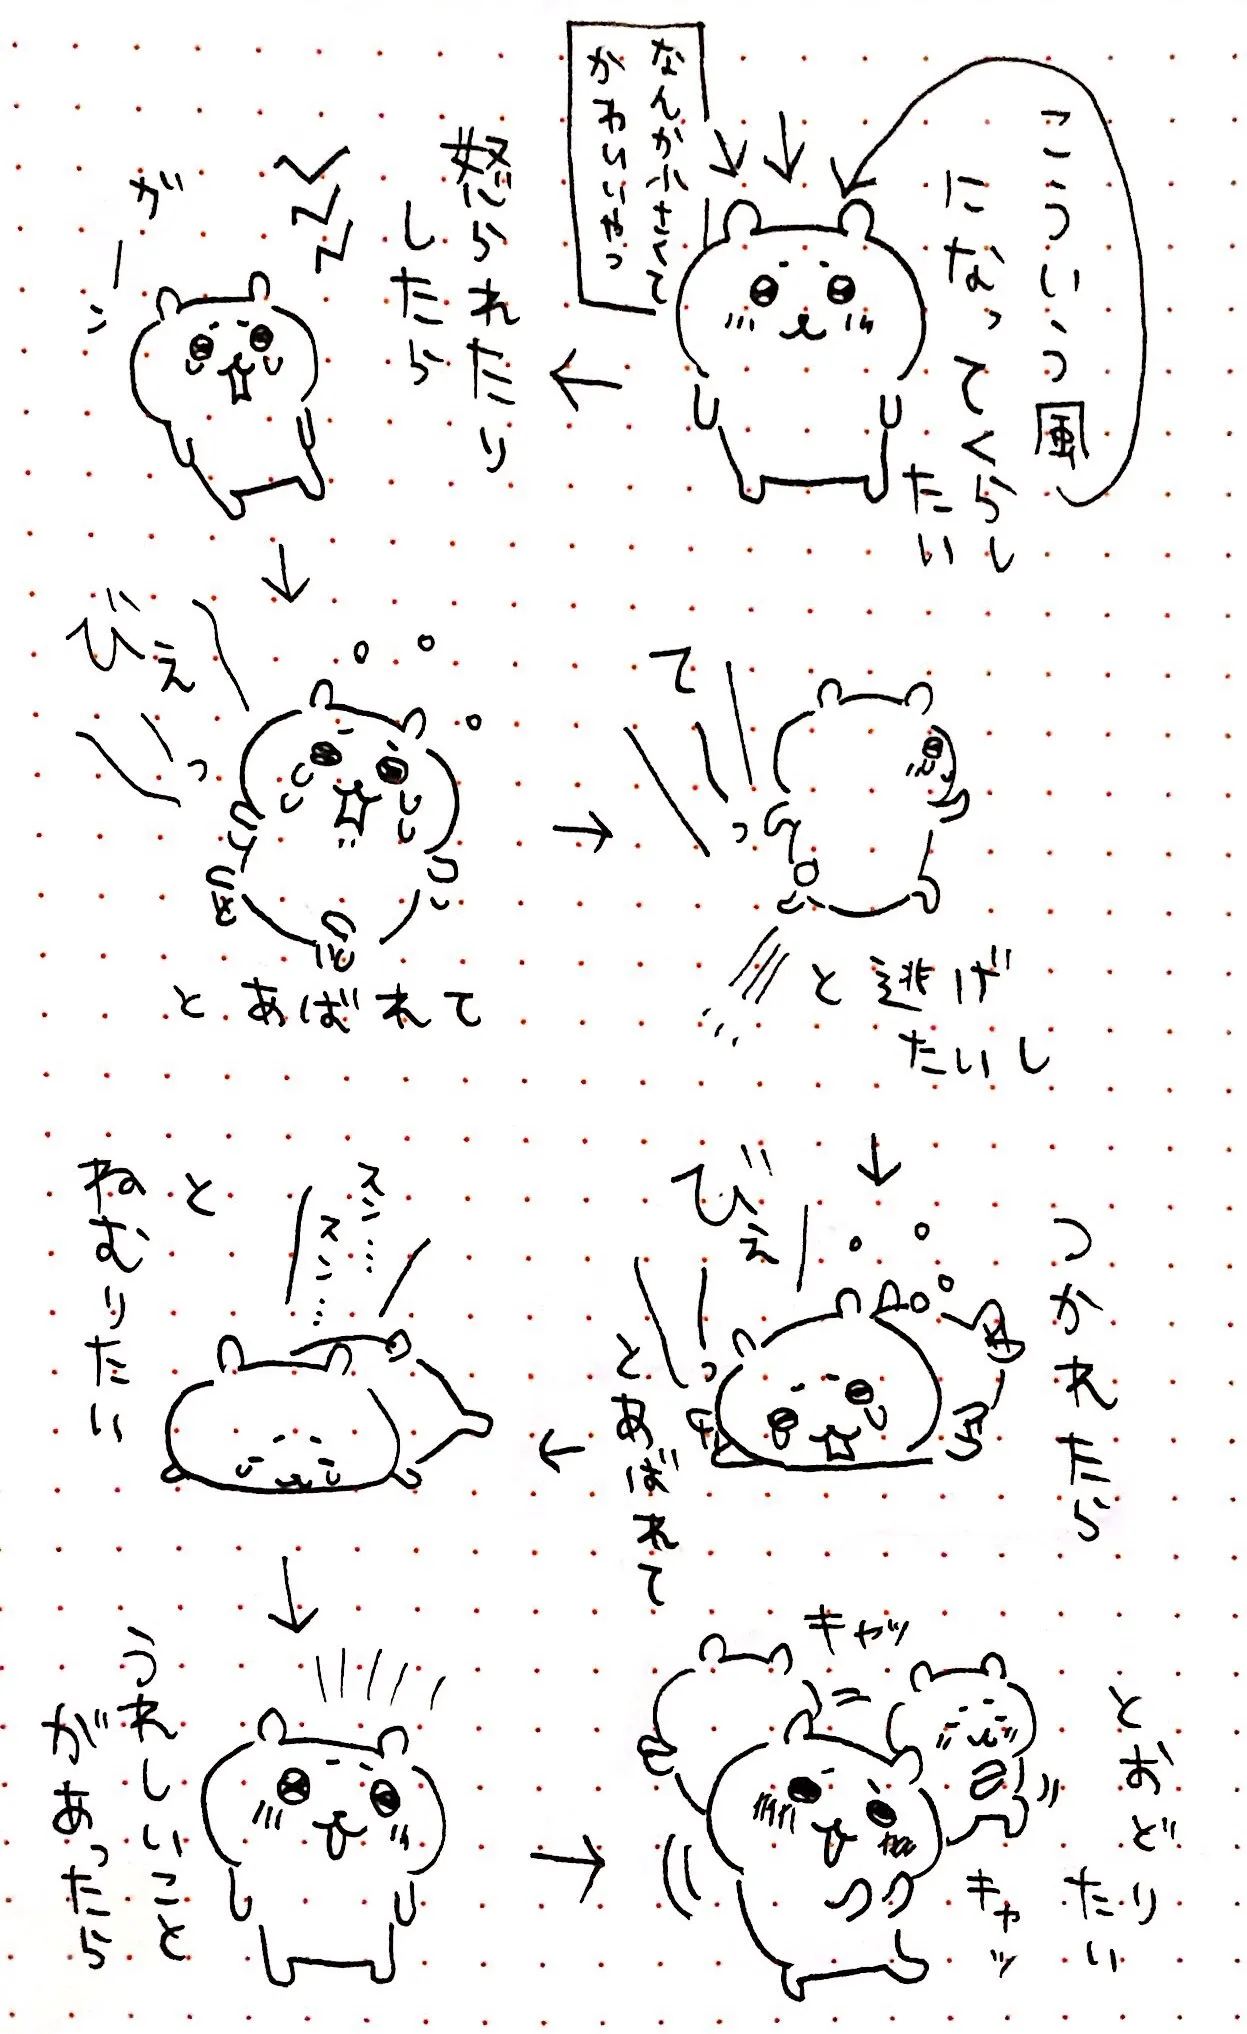 こういう風
になってくらし
たい
なんか小さくて
かわいいやつ
怒られたり
したら
ガーン
びえっ
とあばれて
てっ
と逃げ
たいし
つかれたら
びえっ
とあばれて
スン…
スン…
と
ねむりたい
うれしいこと
があったら
キャッ
キャッ
とおどり
たい